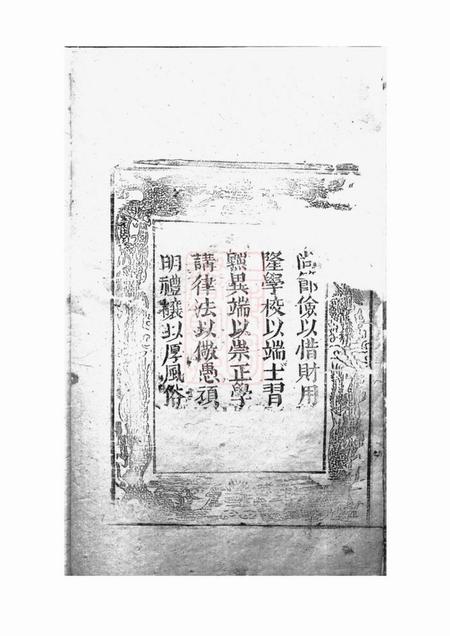 尚節儉以惜財用
隆學校以端士習
黜異端以崇正學
講律法以儆愚頑
明禮讓以厚風俗